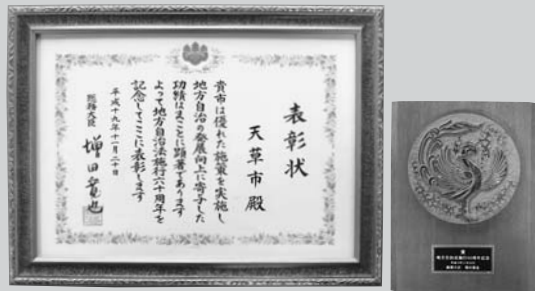 表彰状
天草市殿
貴市は優れた施策を実施し
地方自治の発展向上に寄与した
功績はまことに顕著であります
よって地方自治法施行六十周年を
記念してここに表彰します
平成十九年十一月二十日
総務大臣 増田寛也
地方自治法施行60周年記念